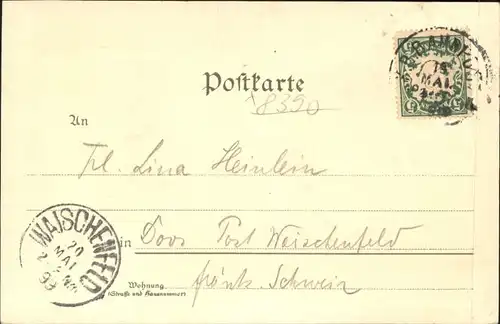 BAHNHOF
19
MAI
Postkarte
18390
An
Frl. Lina Heinlein
WAISCHENFELD
20
MAI
99
in Doos Post Waischenfeld
Wohnung
(Straße und Hausnummer)
fränk. Schweiz